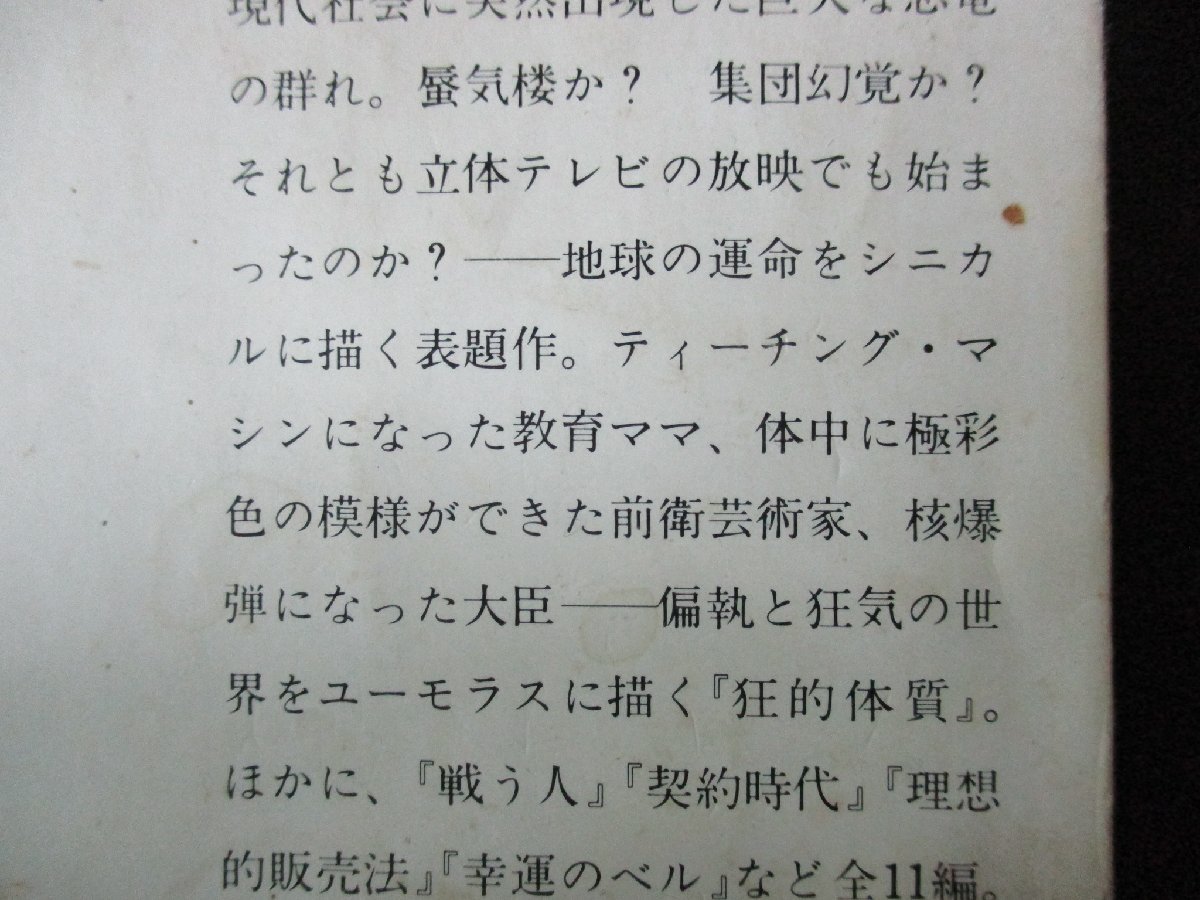 現代社会に突然出現した巨大な恐竜
の群れ。蜃気楼か？　集団幻覚か？
それとも立体テレビの放映でも始ま
ったのか？――地球の運命をシニカ
ルに描く表題作。ティーチング・マ
シンになった教育ママ、体中に極彩
色の模様ができた前衛芸術家、核爆
弾になった大臣――偏執と狂気の世
界をユーモラスに描く『狂的体質』。
ほかに、『戦う人』『契約時代』『理想
的販売法』『幸運のベル』など全11編。